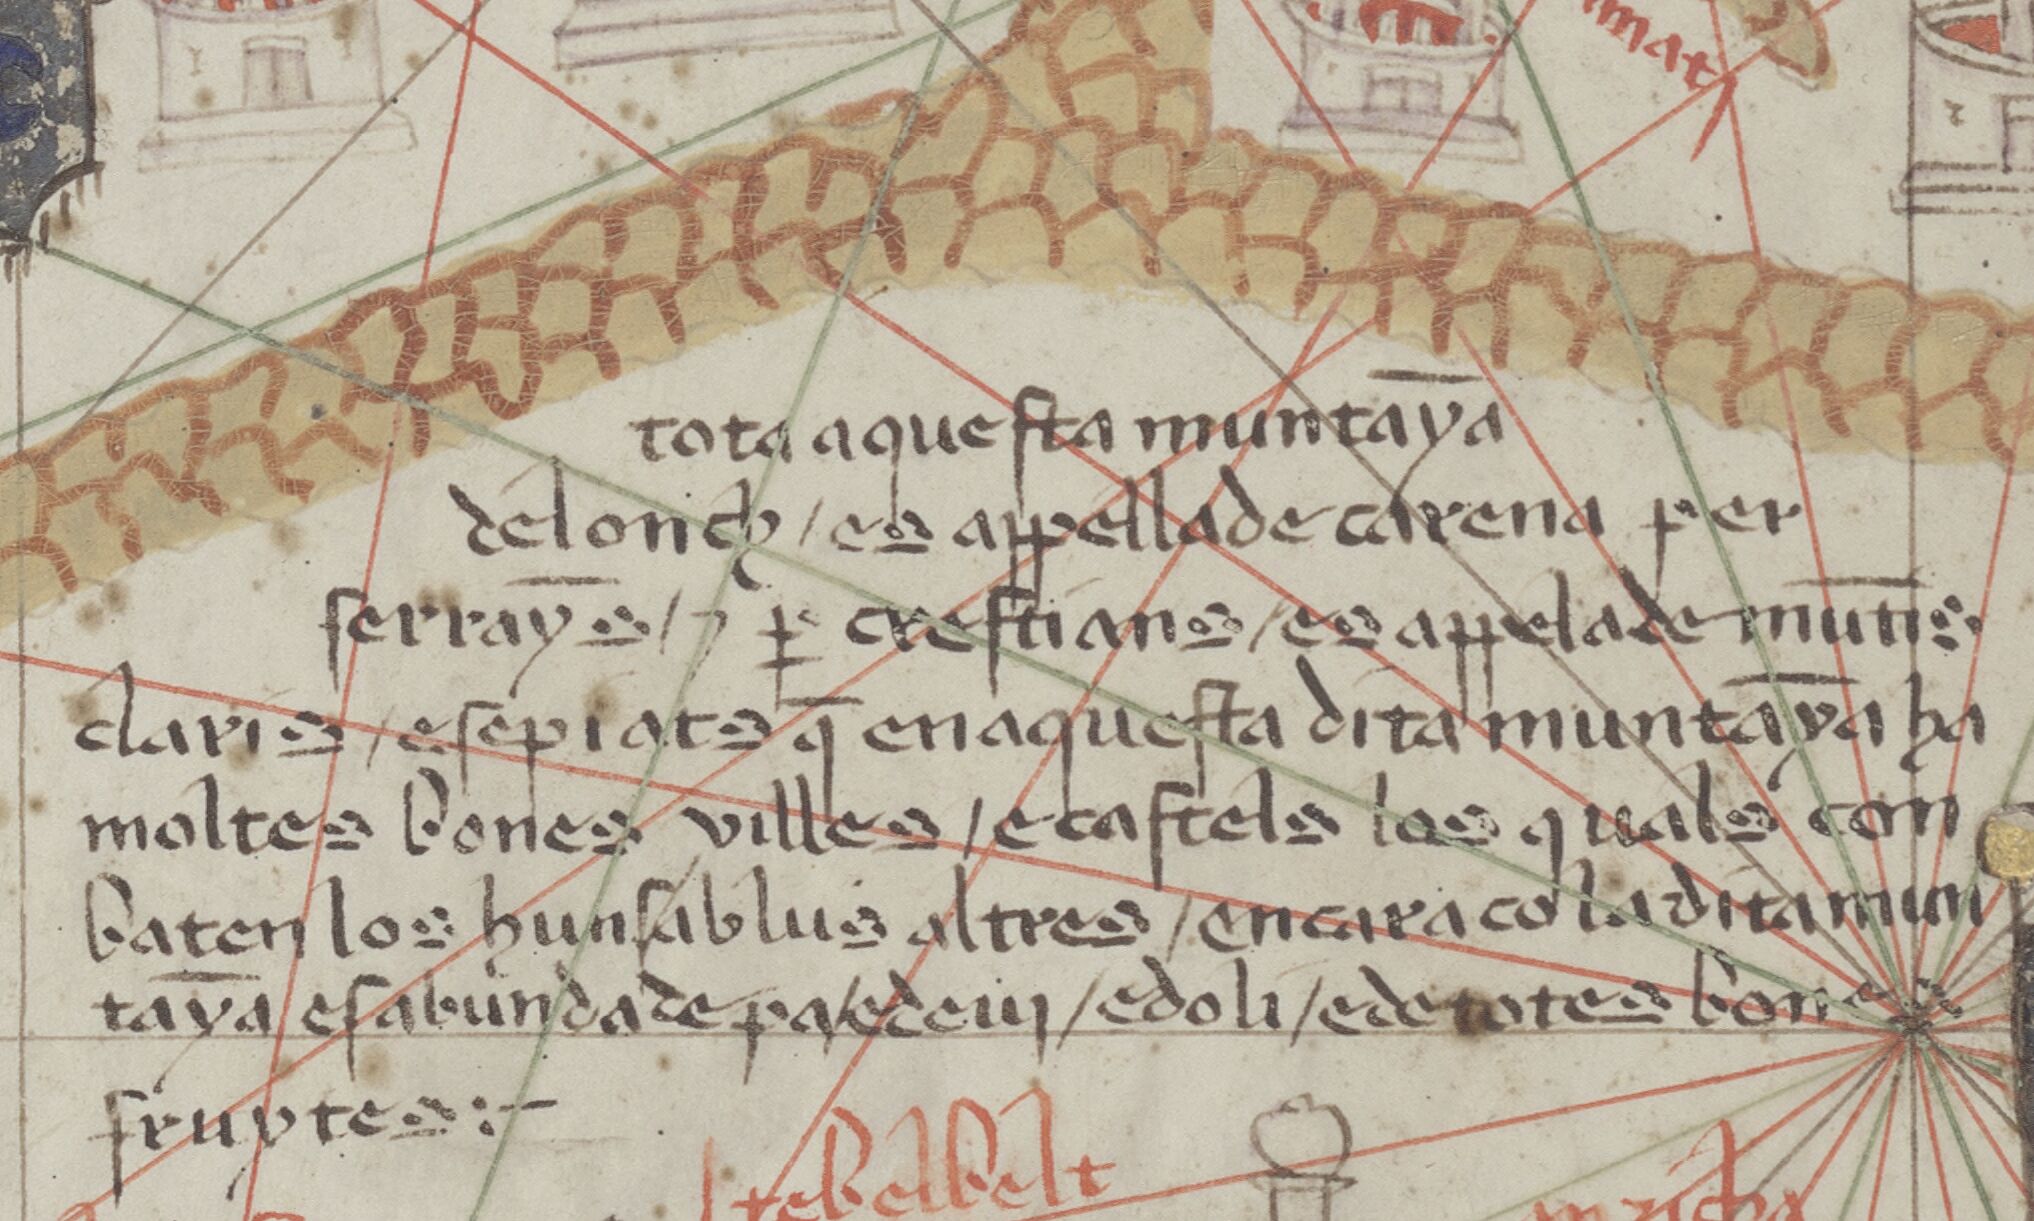 imat
tota aquesta muntaỹa
de lonch / es appellade carena per
serraỹs / ⁊ ꝑ crestians / es appelade mūtis
claris / e sepiats q̄ en aquesta dita muntaỹa ha
moltes bones villes / e castels los quals con
baten los huns ab lus altres / encara co la dita mun
taỹa es abundade pa / e de vi / e doli / e de totes bones
fruytes :-
tebelbelt